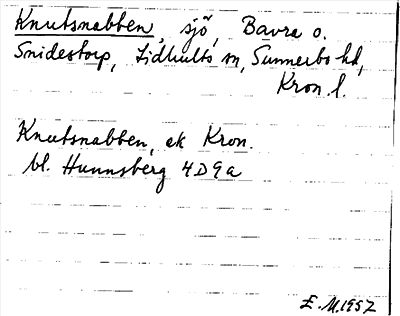 Knutsnabben, sjö, Bavra o.
Snidestorp, Lidhults sn, Sunnerbo hd,
Kron. l.
Knutsnabben, ek Kron.
bl. Hunnsberg 4D9a
E. M. 1957